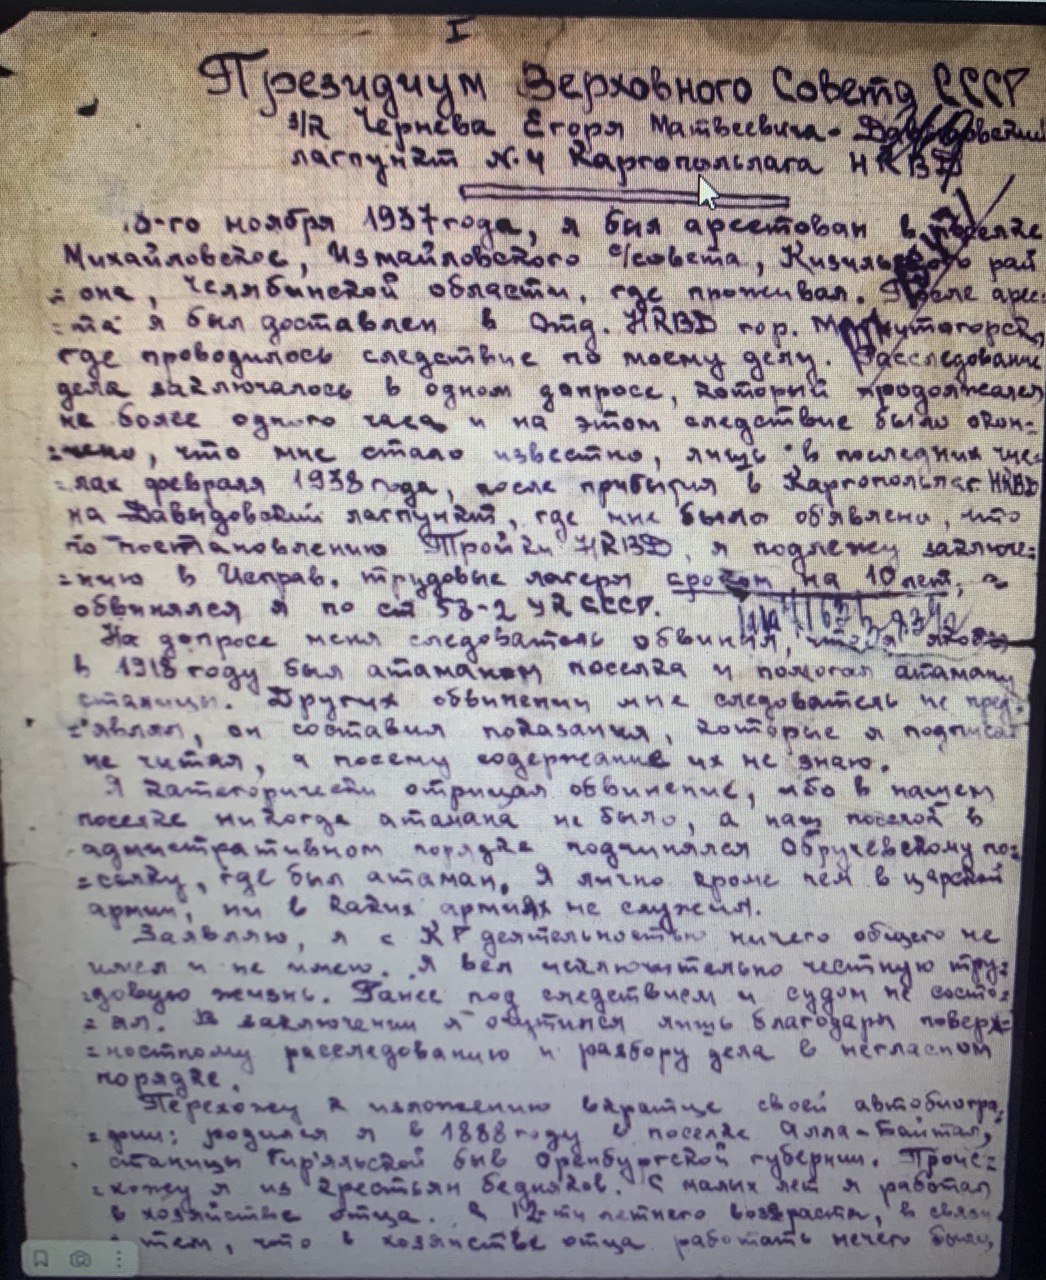 I
Президиум Верховного Совета СССР
з/к Чернева Егора Матвеевича - Давыдовский
лагпункт №4 Каргопольлага НКВД
-го ноября 1937 года, я был арестован в поселке
Михайловское, Измайловского с/совета, Кизильского рай
= она, Челябинской области, где проживал. После арес-
= та я был доставлен в Отд. НКВД гор. Магнутогорск,
где проводилось следствие по моему делу. Расследование
дела заключалось в одном допросе, который продолжался
не более одного часа и на этом следствие было окон=
= чено, что мне стало известно, лишь в последних чис-
= лах февраля 1938 года, после прибытия в Каргопольлаг НКВД
на Давыдовский лагпункт, где мне было об'явлено, что
по постановлению Тройки НКВД, я подлежу заключе=
= нию в Исправ. трудовые лагеря сроком на 10 лет,
обвинялся я по ст 58-2 УК СССР.
На допросе меня следователь обвинил, что я якобы
в 1918 году был атаманом поселка и помогал атаману
станицы. Других обвинении мне следователь не пред-
= 'являл, он составил показания, которые я подписал
не читая, а посему содержание их не знаю.
Я категорически отрицал обвинение, ибо в нашем
поселке никогда атамана не было, а наш поселок в
административном порядке подчинялся Обручевскому по=
= селку, где был атаман. Я лично кроме чем в царской
армии, ни в каких армиях не служил.
Заявляю, я с КР деятельностью ничего общего не
имел и не имею. Я вел исключительно честную тру=
= довую жизнь. Ранее под следствием и судом не состо=
= ял. В заключении я очутился лишь благодаря поверх=
= ностному расследованию и разбору дела в негласном
порядке.
Перехожу к изложению вкратце своей автобиогра=
= фии: родился я в 1888 году в поселке Алла-Байтал,
станицы Гир'яльской быв Оренбургской губернии. Проис=
= хожу я из крестьян бедняков. С малых лет я работал
в хозяйстве отца. С 12-ти летнего возраста, в связи
с тем, что в хозяистве отца работать нечего было,